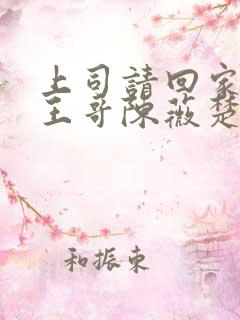 上司請回家
王哥陳薇楚
和振東